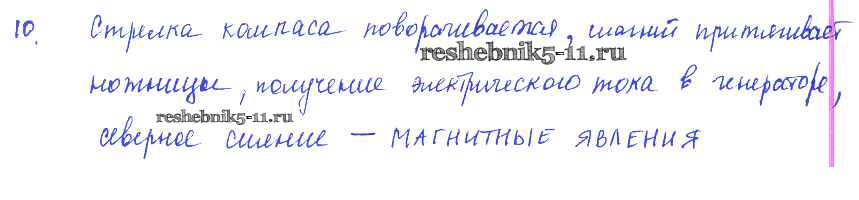 10. Стрелка компаса поворачивается, магний притягивает
reshebnik5-11.ru
ножницы, получение электрического тока в генераторе,
reshebnik5-11.ru
северное сияние — МАГНИТНЫЕ ЯВЛЕНИЯ